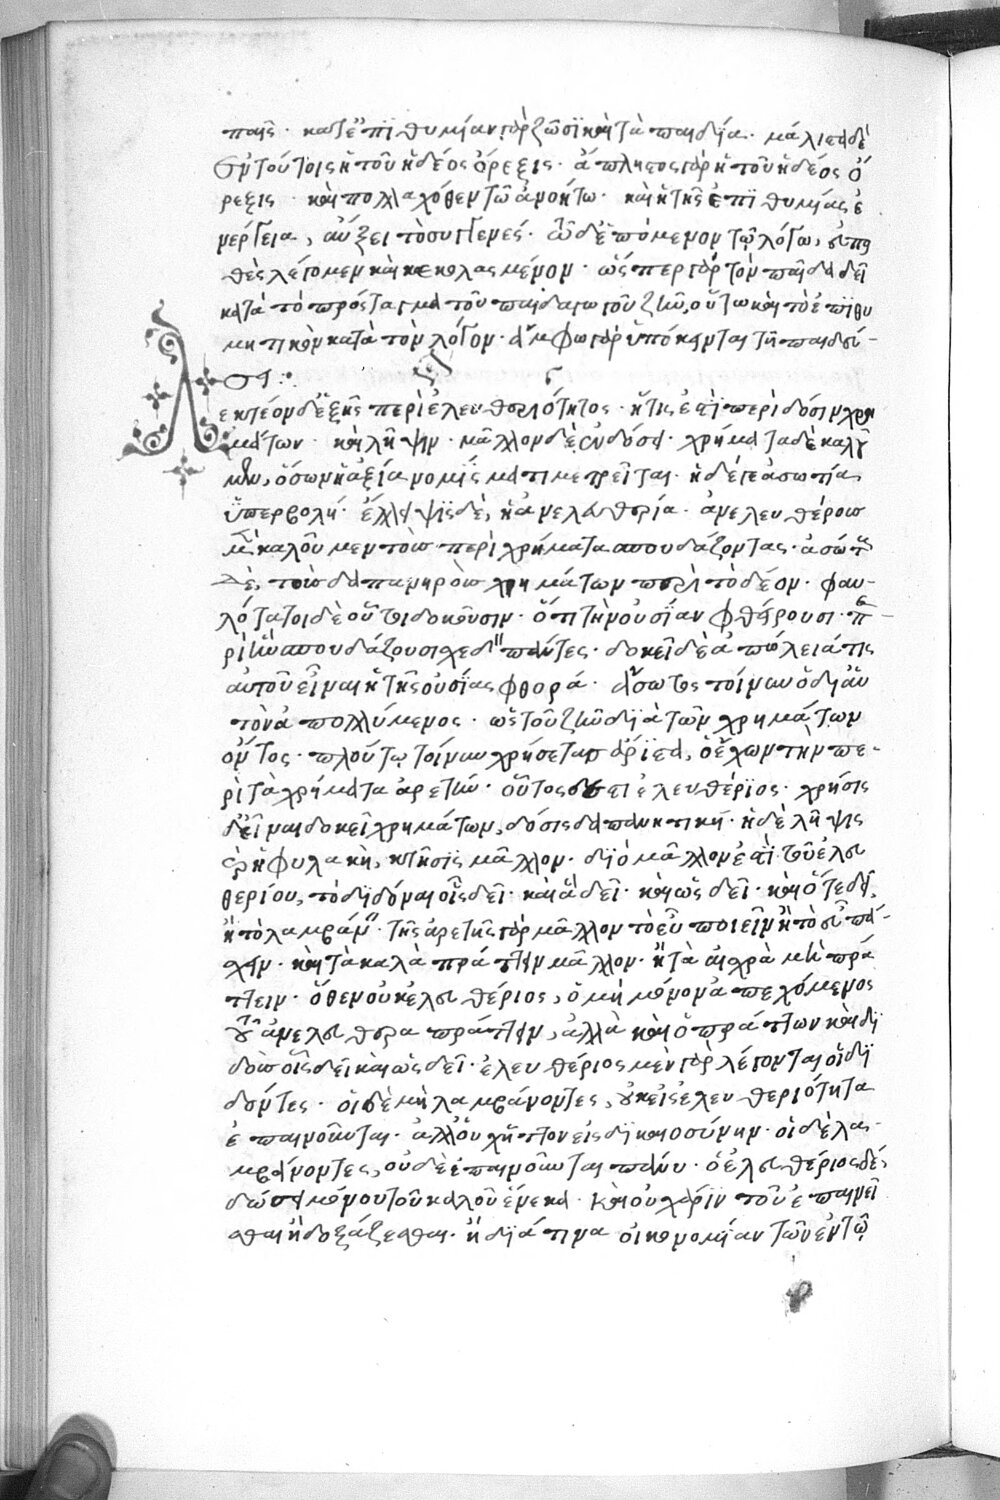 παῖς· κατ' ἐπιθυμίαν γὰρ ζῶσι καὶ τὰ παιδία· μάλιστα δὲ
ἐν τούτοις ἡ τοῦ ἡδέος ὄρεξις· ἄπληστος γὰρ ἡ τοῦ ἡδέος ὄ
ρεξις καὶ πολλαχόθεν τῶ ἀνοήτω· καὶ ἡ τῆς ἐπιθυμίας ἐ
νέργεια, αὔξει τὸ συγγενές· ὧδε ἑπόμενον τῷ λόγω, εὐπει
θὲς λέγομεν καὶ κεκολασμένον· ὥσπερ γὰρ τὸν παῖδα δεῖ
κατὰ τὸ πρόσταγμα τοῦ παιδαγωγοῦ ζῆν, οὕτω καὶ τὸ ἐπιθυ
μητικὸν κατὰ τὸν λόγον· ἄμφω γὰρ ὑπόκεινται τῆ παιδεύ-
σει:·
Λεκτέον δ' ἑξῆς περὶ ἐλευθεριότητος· ἥτις ἐστὶ περὶ δόσιν χρη
μάτων· καὶ λῆψιν· μᾶλλον δὲ ἐν δόσει· χρήματα δὲ καλοῦ
μεν, ὅσων ἡ ἀξία νομίσματι μετρεῖται· ἡ δέ γε ἀσωτία,
ὑπερβολή· ἔλλειψις δὲ, ἡ ἀνελευθερία· ἀνελευθέρους
μὲν καλοῦμεν τοὺς περὶ χρήματα σπουδάζοντας· ἀσώτους
δὲ, τοὺς δαπανηροὺς χρημάτων παρὰ τὸ δέον· φαυ-
λότατοι δὲ οὗτοι δοκοῦσιν· ὅτι τὴν οὐσίαν φθείρουσι· πε-
ρὶ ἣν σπουδάζουσι σχεδὸν πάντες· δοκεῖ δὲ ἀπώλειά τις
αὐτοῦ εἶναι ἡ τῆς οὐσίας φθορά· ἄσωτος τοίνυν ὁ δι' αὑ
τὸν ἀπολλύμενος· ὡς τοῦ ζῆν διὰ τῶν χρημάτων
ὄντος· πλούτῳ τοίνυν χρήσεται ἄριστα, ὁ ἔχων τὴν πε-
ρὶ τὰ χρήματα ἀρετήν· οὗτος δέ ἐστι ἐλευθέριος· χρῆσις
δὲ εἶναι δοκεῖ χρημάτων, δόσις δαπανητική· ἡ δὲ λῆψις
καὶ ἡ φυλακὴ, κτῆσις μᾶλλον· διὸ μᾶλλον ἐστὶ τοῦ ἐλευ
θερίου, τὸ διδόναι οἷς δεῖ· καὶ ἃ δεῖ· καὶ ὡς δεῖ· καὶ ὅτε δεῖ,
ἢ τὸ λαμβάνειν· τῆς ἀρετῆς γὰρ μᾶλλον τὸ εὖ ποιεῖν ἢ τὸ εὖ πά-
σχειν· καὶ τὰ καλὰ πράττειν μᾶλλον· ἢ τὰ αἰσχρὰ μὴ πρά
ττειν· ὅθεν οὐκ ἐλευθέριος, ὁ μὴ μόνον ἀπεχόμενος
τοῦ ἀνελεύθερα πράττειν, ἀλλὰ καὶ ὁ πράττων καὶ δι
δοὺς οἷς δεῖ καὶ ὡς δεῖ· ἐλευθέριος μὲν γὰρ λέγονται οἱ δι
δόντες· οἱ δὲ μὴ λαμβάνοντες, οὐκ εἰς ἐλευθεριότητα
ἐπαινοῦνται· ἀλλ' οὐχ ἧττον εἰς δικαιοσύνην· οἱ δὲ λα-
μβάνοντες, οὐδὲ ἐπαινοῦνται πάνυ· ὁ ἐλευθέριος δὲ,
δώσει μόνου τοῦ καλοῦ ἕνεκα· καὶ οὐ χάριν τοῦ ἐπαινεῖ
σθαι ἢ δοξάζεσθαι· ἢ διά τινα οἰκονομίαν τῶν ἐν τῷ